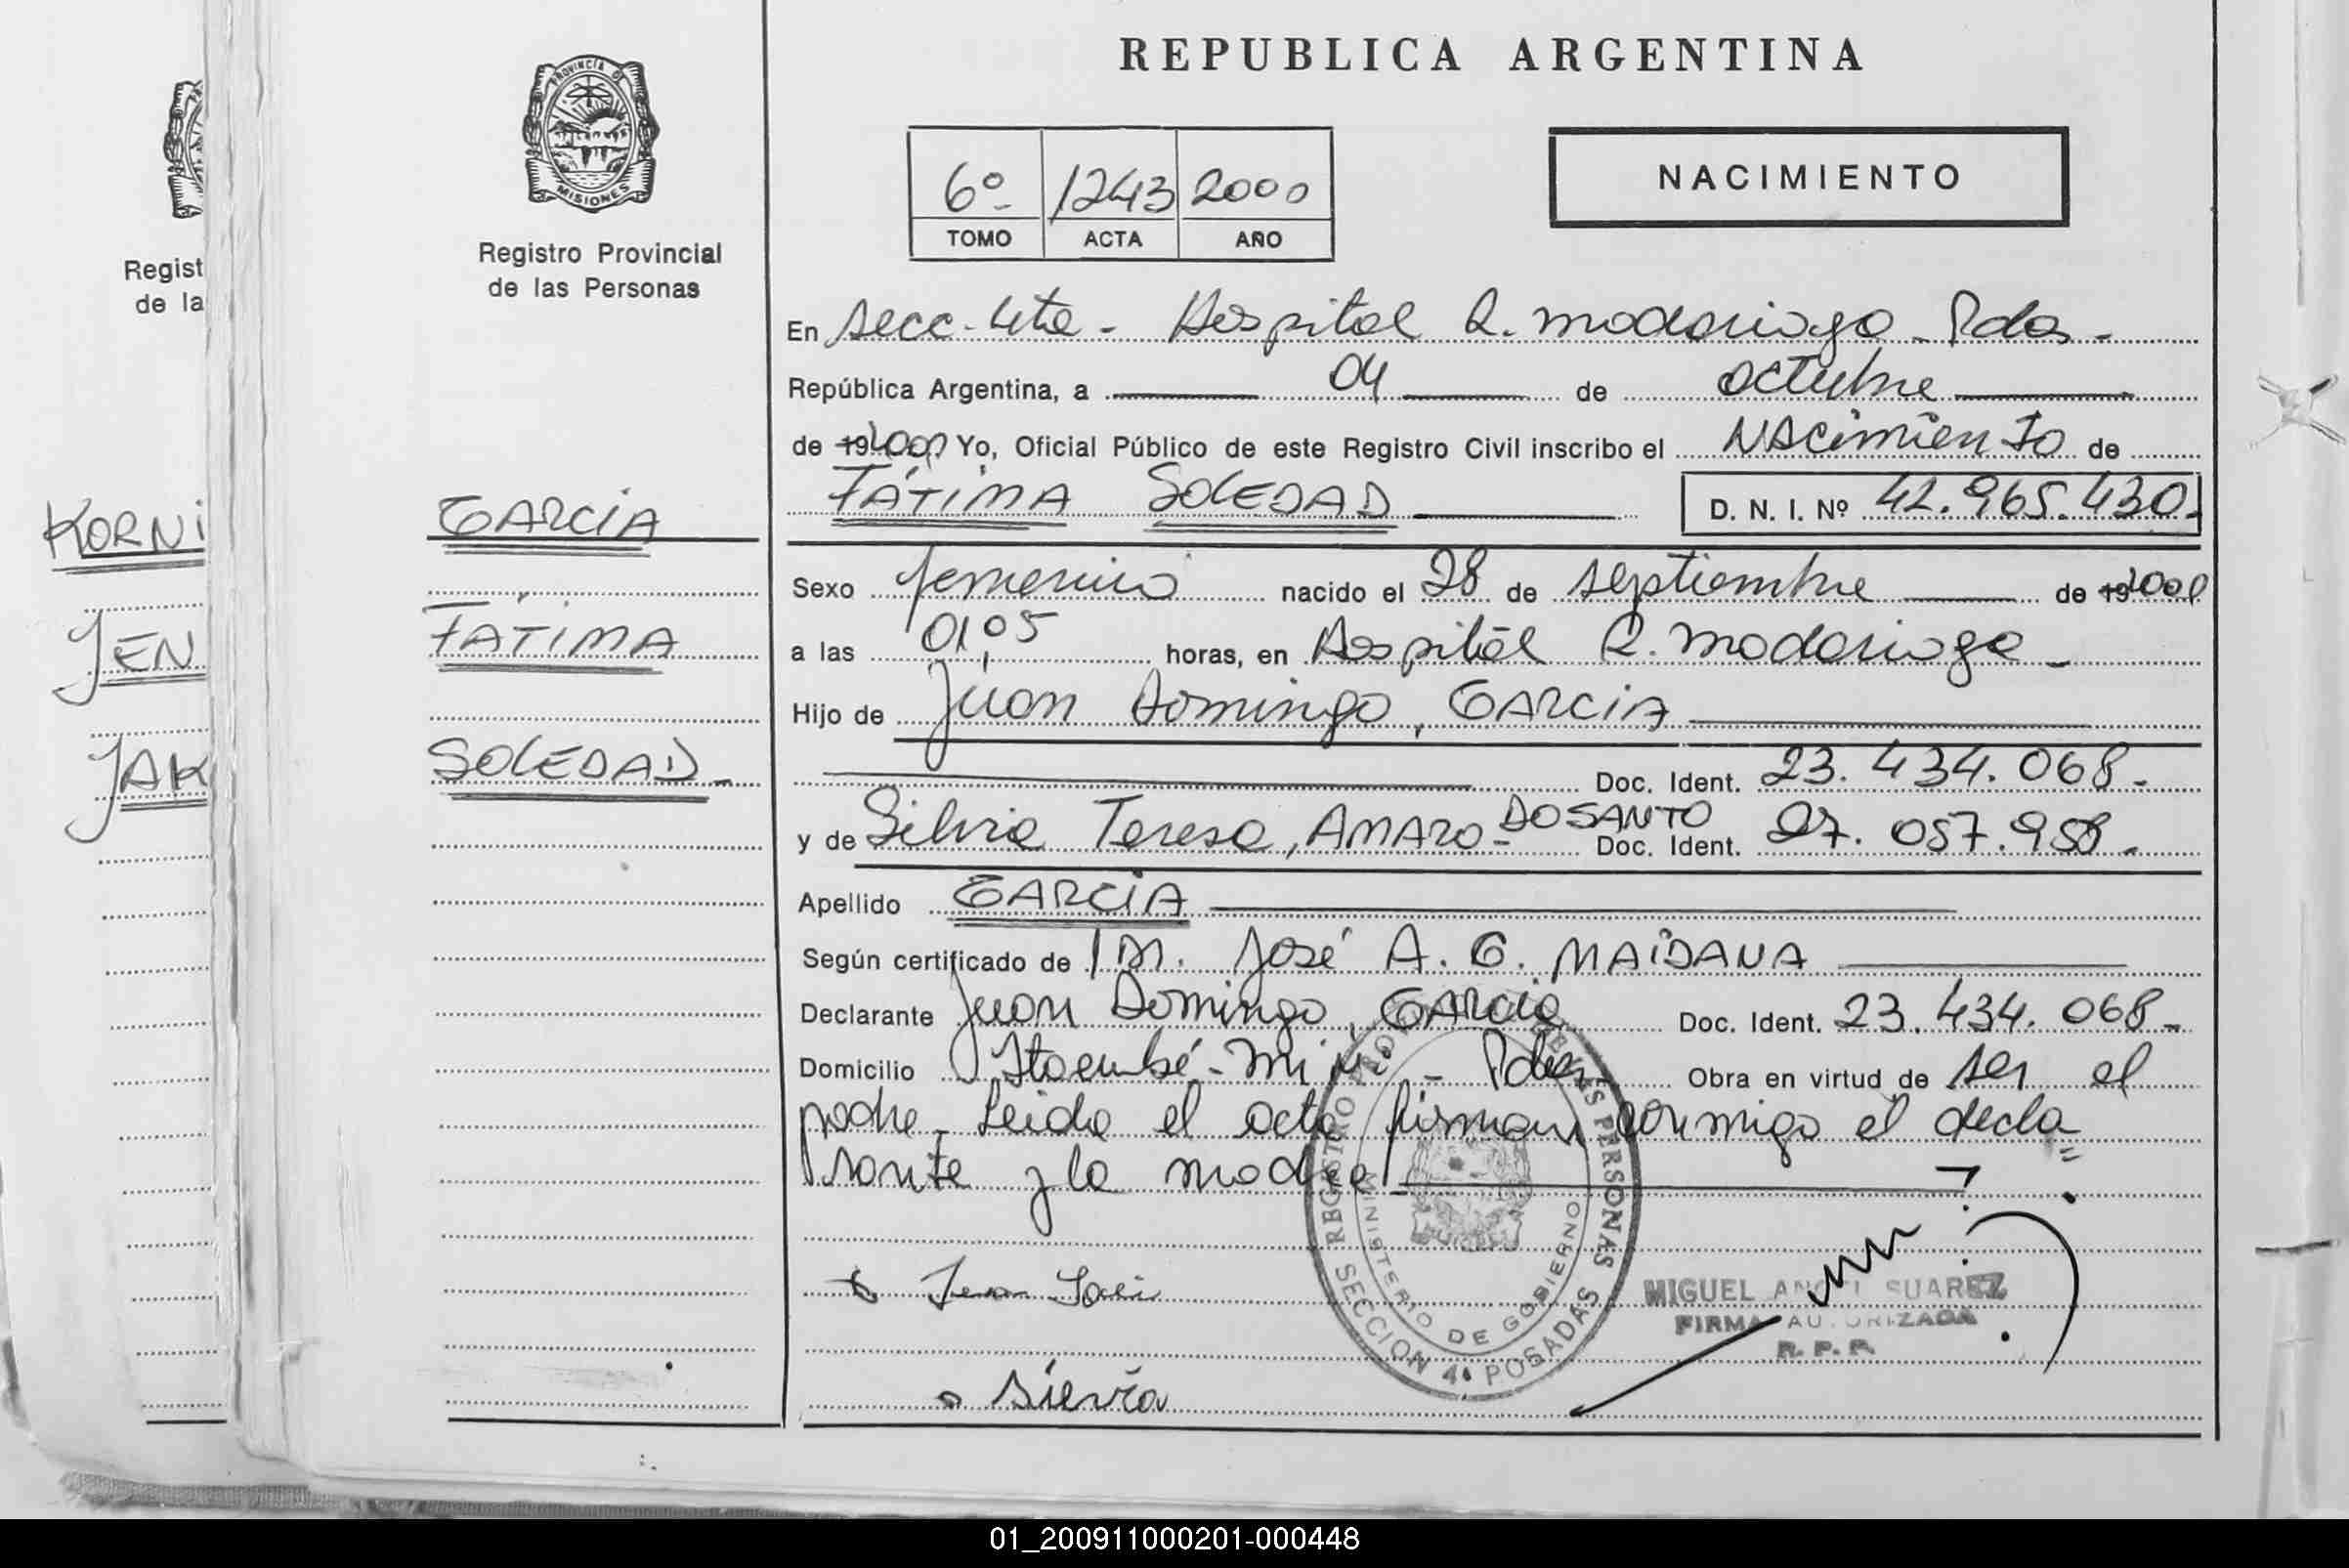 REPUBLICA ARGENTINA
PROVINCIA D
MISIONES
Registro Provincial
de las Personas
6º 1243 2000
TOMO ACTA AÑO
NACIMIENTO
En Secc. 4ta - Hospital R. Madariaga - Pdas -
República Argentina, a 04 de octubre
de 19 2000 Yo, Oficial Público de este Registro Civil inscribo el NACimienTo de
FÁTIMA SOLEDAD D. N. I. Nº 42.965.430.
Sexo femenino nacido el 28 de septiembre de 19 2000
a las 01,05 horas, en Hospital R. Madariaga -
Hijo de Juan Domingo, GARCIA
Doc. Ident. 23.434.068.-
y de Silvia Teresa, AMARO - DOSANTO Doc. Ident. 27.057.958.-
Apellido GARCIA
Según certificado de José A. G. MAIDANA
Declarante Juan Domingo, GARCIA Doc. Ident. 23.434.068 -
Domicilio Itaembé - Miní - Pdas - Obra en virtud de ser el
padre. Leida el acta firman conmigo el decla
rante y la madre
REGISTRO PROVINCIAL DE LAS PERSONAS
MINISTERIO DE GOBIERNO
SECCION 4ª POSADAS
MIGUEL ANGEL SUAREZ
FIRMA AUTORIZADA
R. P. P.
silvia
GARCIA
FÁTIMA
SOLEDAD -
Regist
de la
KORNi
JEN
JAK
01_200911000201-000448